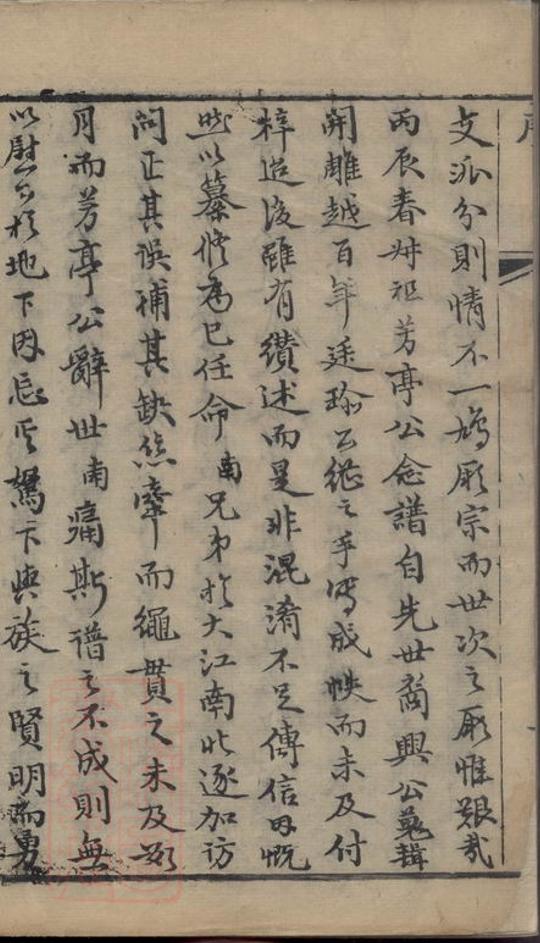 支派分則情不一鳩厥宗而世次之厥惟艱哉
丙辰春叔祖芳亭公念譜自先世裔興公蒐輯
開雕越百年廷瑜公繼之手寫成帙而未及付
梓迨後雖有纘述而是非混淆不足傳信用慨
然以纂修為己任命南兄弟於大江南北逐加訪
問正其誤補其缺條牽而繩貫之未及期
月而芳亭公辭世南痛斯譜之不成則無
以慰公於地下因忘其駑下與族之賢明而勇